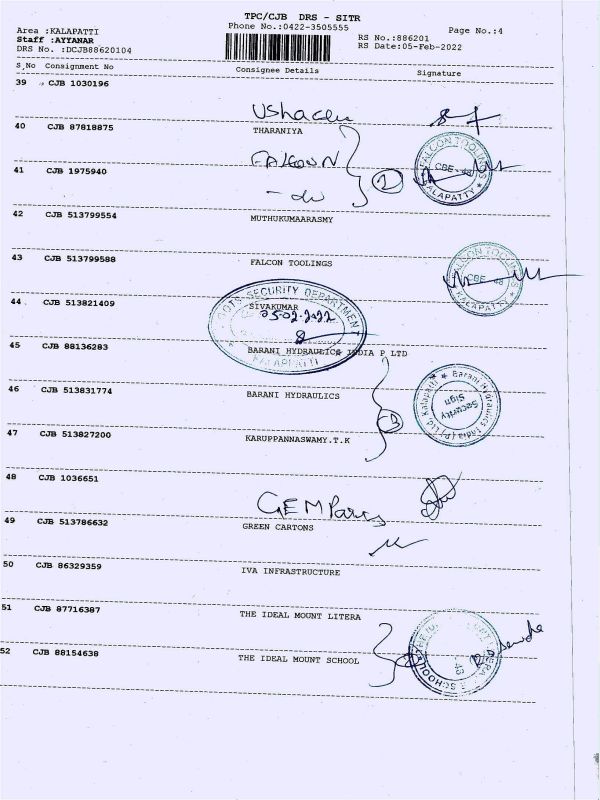 TPC/CJB DRS - SITR
Area :KALAPATTI
Phone No.:0422-3505555
Page No.:4
Staff :AYYANAR
RS No.:886201
DRS No. :DCJB88620104
RS Date:05-Feb-2022
S_No Consignment No Consignee Details Signature
39 CJB 1030196
40 CJB 87818875 THARANIYA
FALCOON
41 CJB 1975940
2
FALCON TOOLINGS
CBE - 48
KALAPATTY
42 CJB 513799554 MUTHUKUMAARASMY
43 CJB 513799588 FALCON TOOLINGS
FALCON TOOLINGS
CBE - 48
KALAPATTY
44 CJB 513821409 SIVAKUMAR
SECURITY DEPARTMENT
05.02.2022
KALAPATTI
45 CJB 88136283 BARANI HYDRAULICS INDIA P LTD
46 CJB 513831774 BARANI HYDRAULICS
3
Barani Hydraulics India (P) Ltd, Kalapatti
Security
Sign
47 CJB 513827200 KARUPPANNASWAMY.T.K
48 CJB 1036651
GEM Parts
49 CJB 513786632 GREEN CARTONS
50 CJB 86329359 IVA INFRASTRUCTURE
51 CJB 87716387 THE IDEAL MOUNT LITERA
52 CJB 88154638 THE IDEAL MOUNT SCHOOL